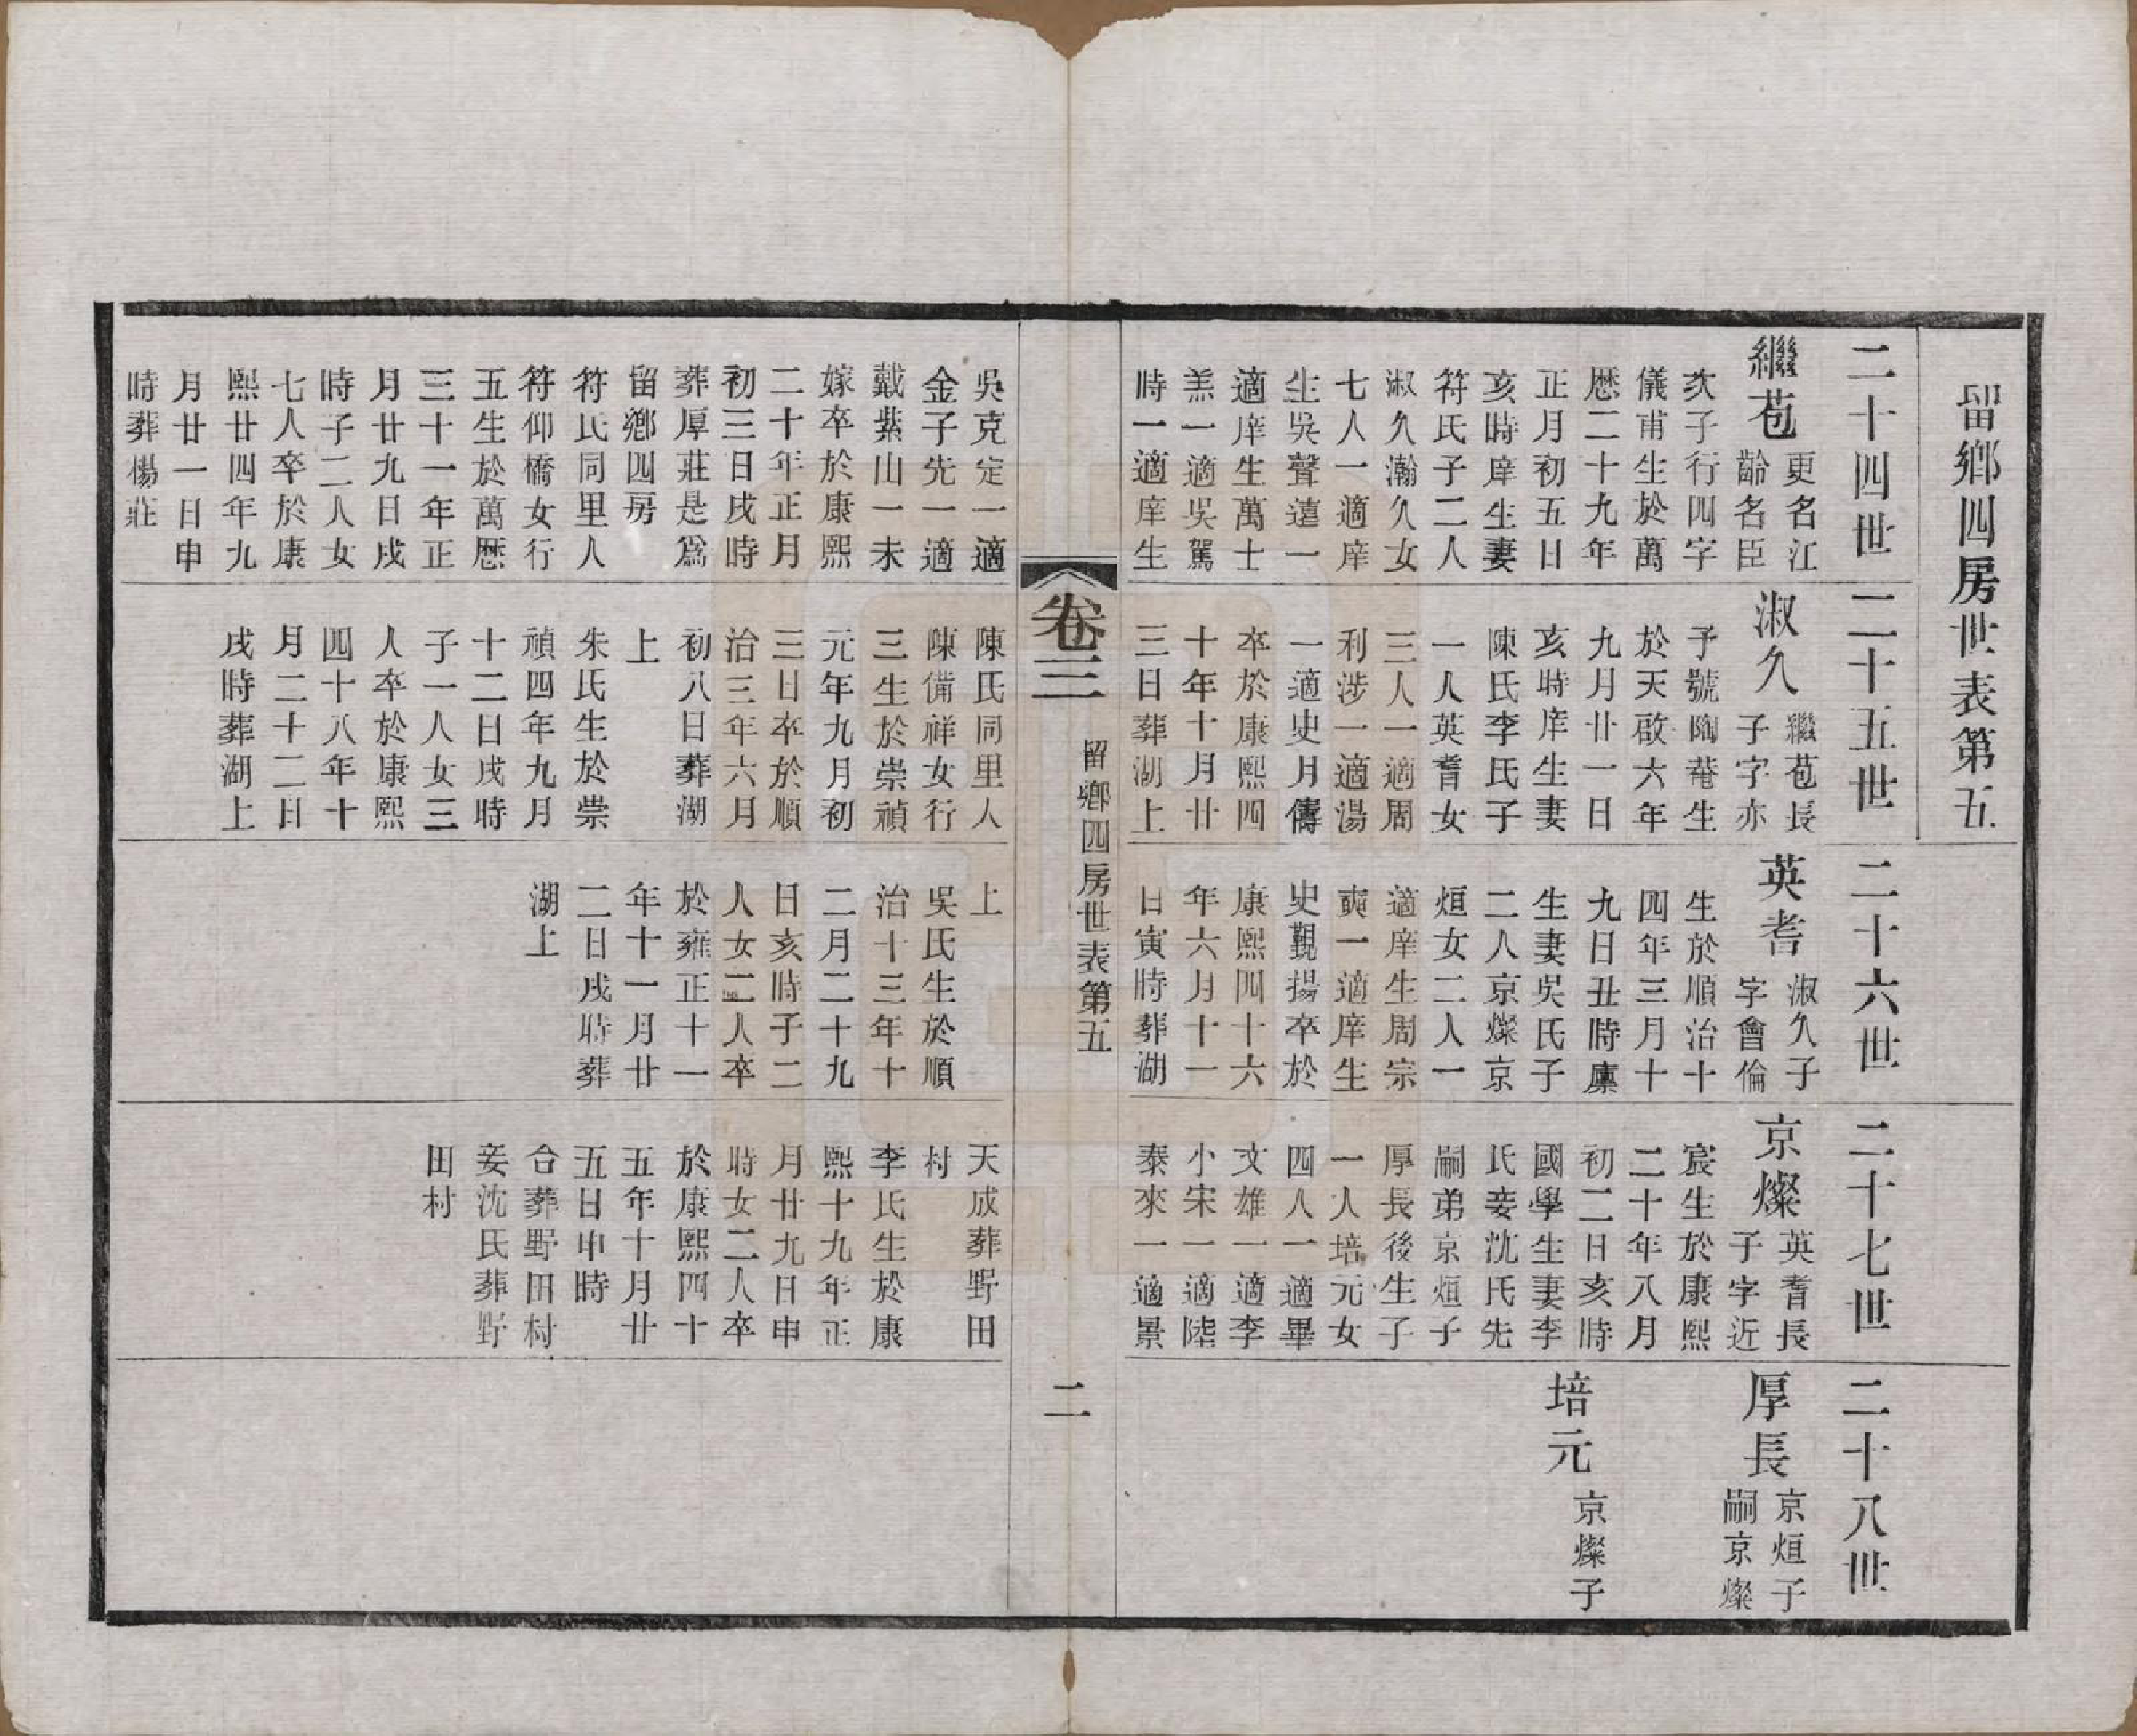 留鄉四房世表第五
二十四世
繼苞
更名江
齡名臣
次子行四字
儀甫生於萬
厯二十九年
正月初五日
亥時庠生妻
符氏子二人
淑久瀚久女
七人一適庠
生吳聲遠一
適庠生萬士
羔一適吳駕
時一適庠生
吳克定一適
金子先一適
戴紫山一未
嫁卒於康熙
二十年正月
初三日戌時
葬厚莊是爲
留鄉四房
符氏同里人
符仰橋女行
五生於萬厯
三十一年正
月廿九日戌
時子二人女
七人卒於康
熙廿四年九
月廿一日申
時葬楊莊
二十五世
淑久
繼苞長
子字亦
予號陶菴生
於天啟六年
九月廿一日
亥時庠生妻
陳氏李氏子
一人英耆女
三人一適周
利涉一適湯
一適史月儔
卒於康熙四
十年十月廿
三日葬湖上
陳氏同里人
陳備祥女行
三生於崇禎
元年九月初
三日卒於順
治三年六月
初八日葬湖
上
朱氏生於崇
禎四年九月
十二日戌時
子一人女三
人卒於康熙
四十八年十
月二十二日
戌時葬湖上
二十六世
英耆
淑久子
字會倫
生於順治十
四年三月十
九日丑時廩
生妻吳氏子
二人京燦京
烜女二人一
適庠生周宗
奭一適庠生
史覲揚卒於
康熙四十六
年六月十一
日寅時葬湖
上
吳氏生於順
治十三年十
二月二十九
日亥時子二
人女二人卒
於雍正十一
年十一月廿
二日戌時葬
湖上
二十七世
京燦
英耆長
子字近
宸生於康熙
二十年八月
初二日亥時
國學生妻李
氏妾沈氏先
嗣弟京烜子
厚長後生子
一人培元女
四人一適畢
文雄一適李
小宋一適陸
泰來一適景
天成葬野田
村
李氏生於康
熙十九年正
月廿九日申
時女二人卒
於康熙四十
五年十月廿
五日申時
合葬野田村
妾沈氏葬野
田村
二十八世
厚長
京烜子
嗣京燦
培元
京燦子
卷三
留鄉四房世表第五
二